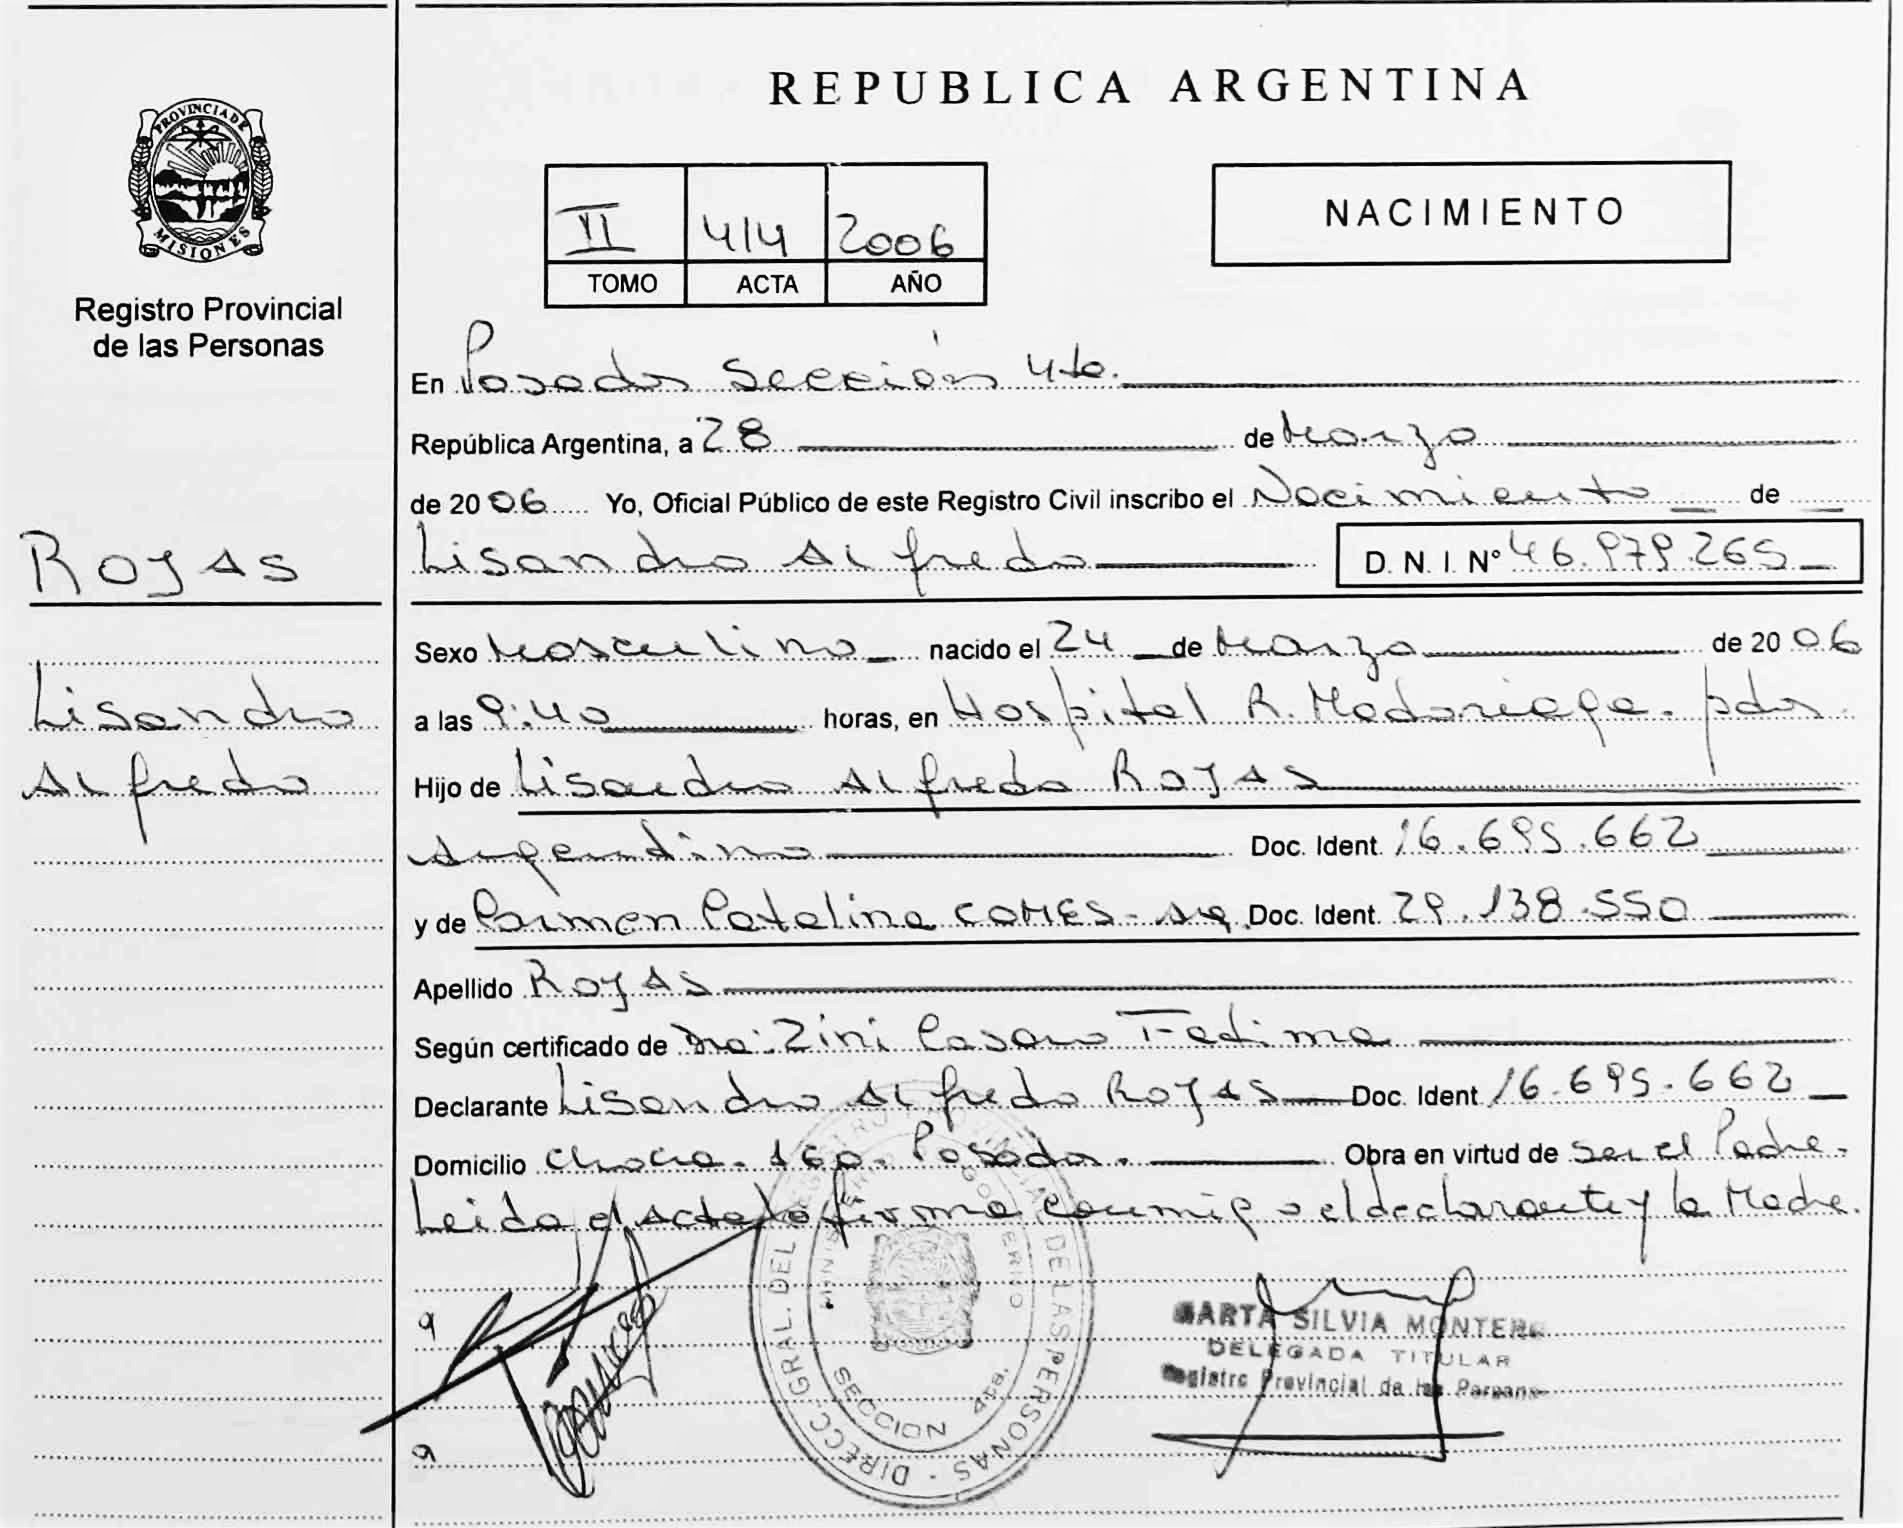 REPUBLICA ARGENTINA
PROVINCIA DE MISIONES
Registro Provincial
de las Personas
II 414 2006
TOMO ACTA AÑO
NACIMIENTO
En Posadas Sección 4ta.
República Argentina, a 28 de Marzo
de 2006 Yo, Oficial Público de este Registro Civil inscribo el Nacimiento de
ROJAS
Lisandro Alfredo D. N. I. Nº 46.979.265
Sexo Masculino nacido el 24 de Marzo de 2006
Lisandro
a las 9:40 horas, en Hospital R. Madariaga. pdas.
Alfredo
Hijo de Lisandro Alfredo ROJAS
Argentino Doc. Ident. 16.695.662
y de Carmen Catalina GOMES - Arg. Doc. Ident. 29.138.550
Apellido ROJAS
Según certificado de Dra. Zini Casaro Fatima
Declarante Lisandro Alfredo ROJAS Doc. Ident 16.695.662
Domicilio 160. Posadas. Obra en virtud de ser el Padre.
Leida el Acta la firma conmigo el declarante y la Madre.
DIRECC. GRAL. DEL REGISTRO PROVINCIAL DE LAS PERSONAS
MINISTERIO GOBIERNO
SECCION 4ta.
MARTA SILVIA MONTERO
DELEGADA TITULAR
Registro Provincial de las Personas